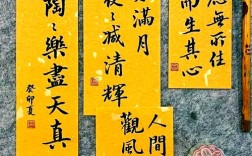 應無所住
而生其心
滿月
夜〻減清輝
人間
觀風
陶〻樂盡天真
癸卯夏